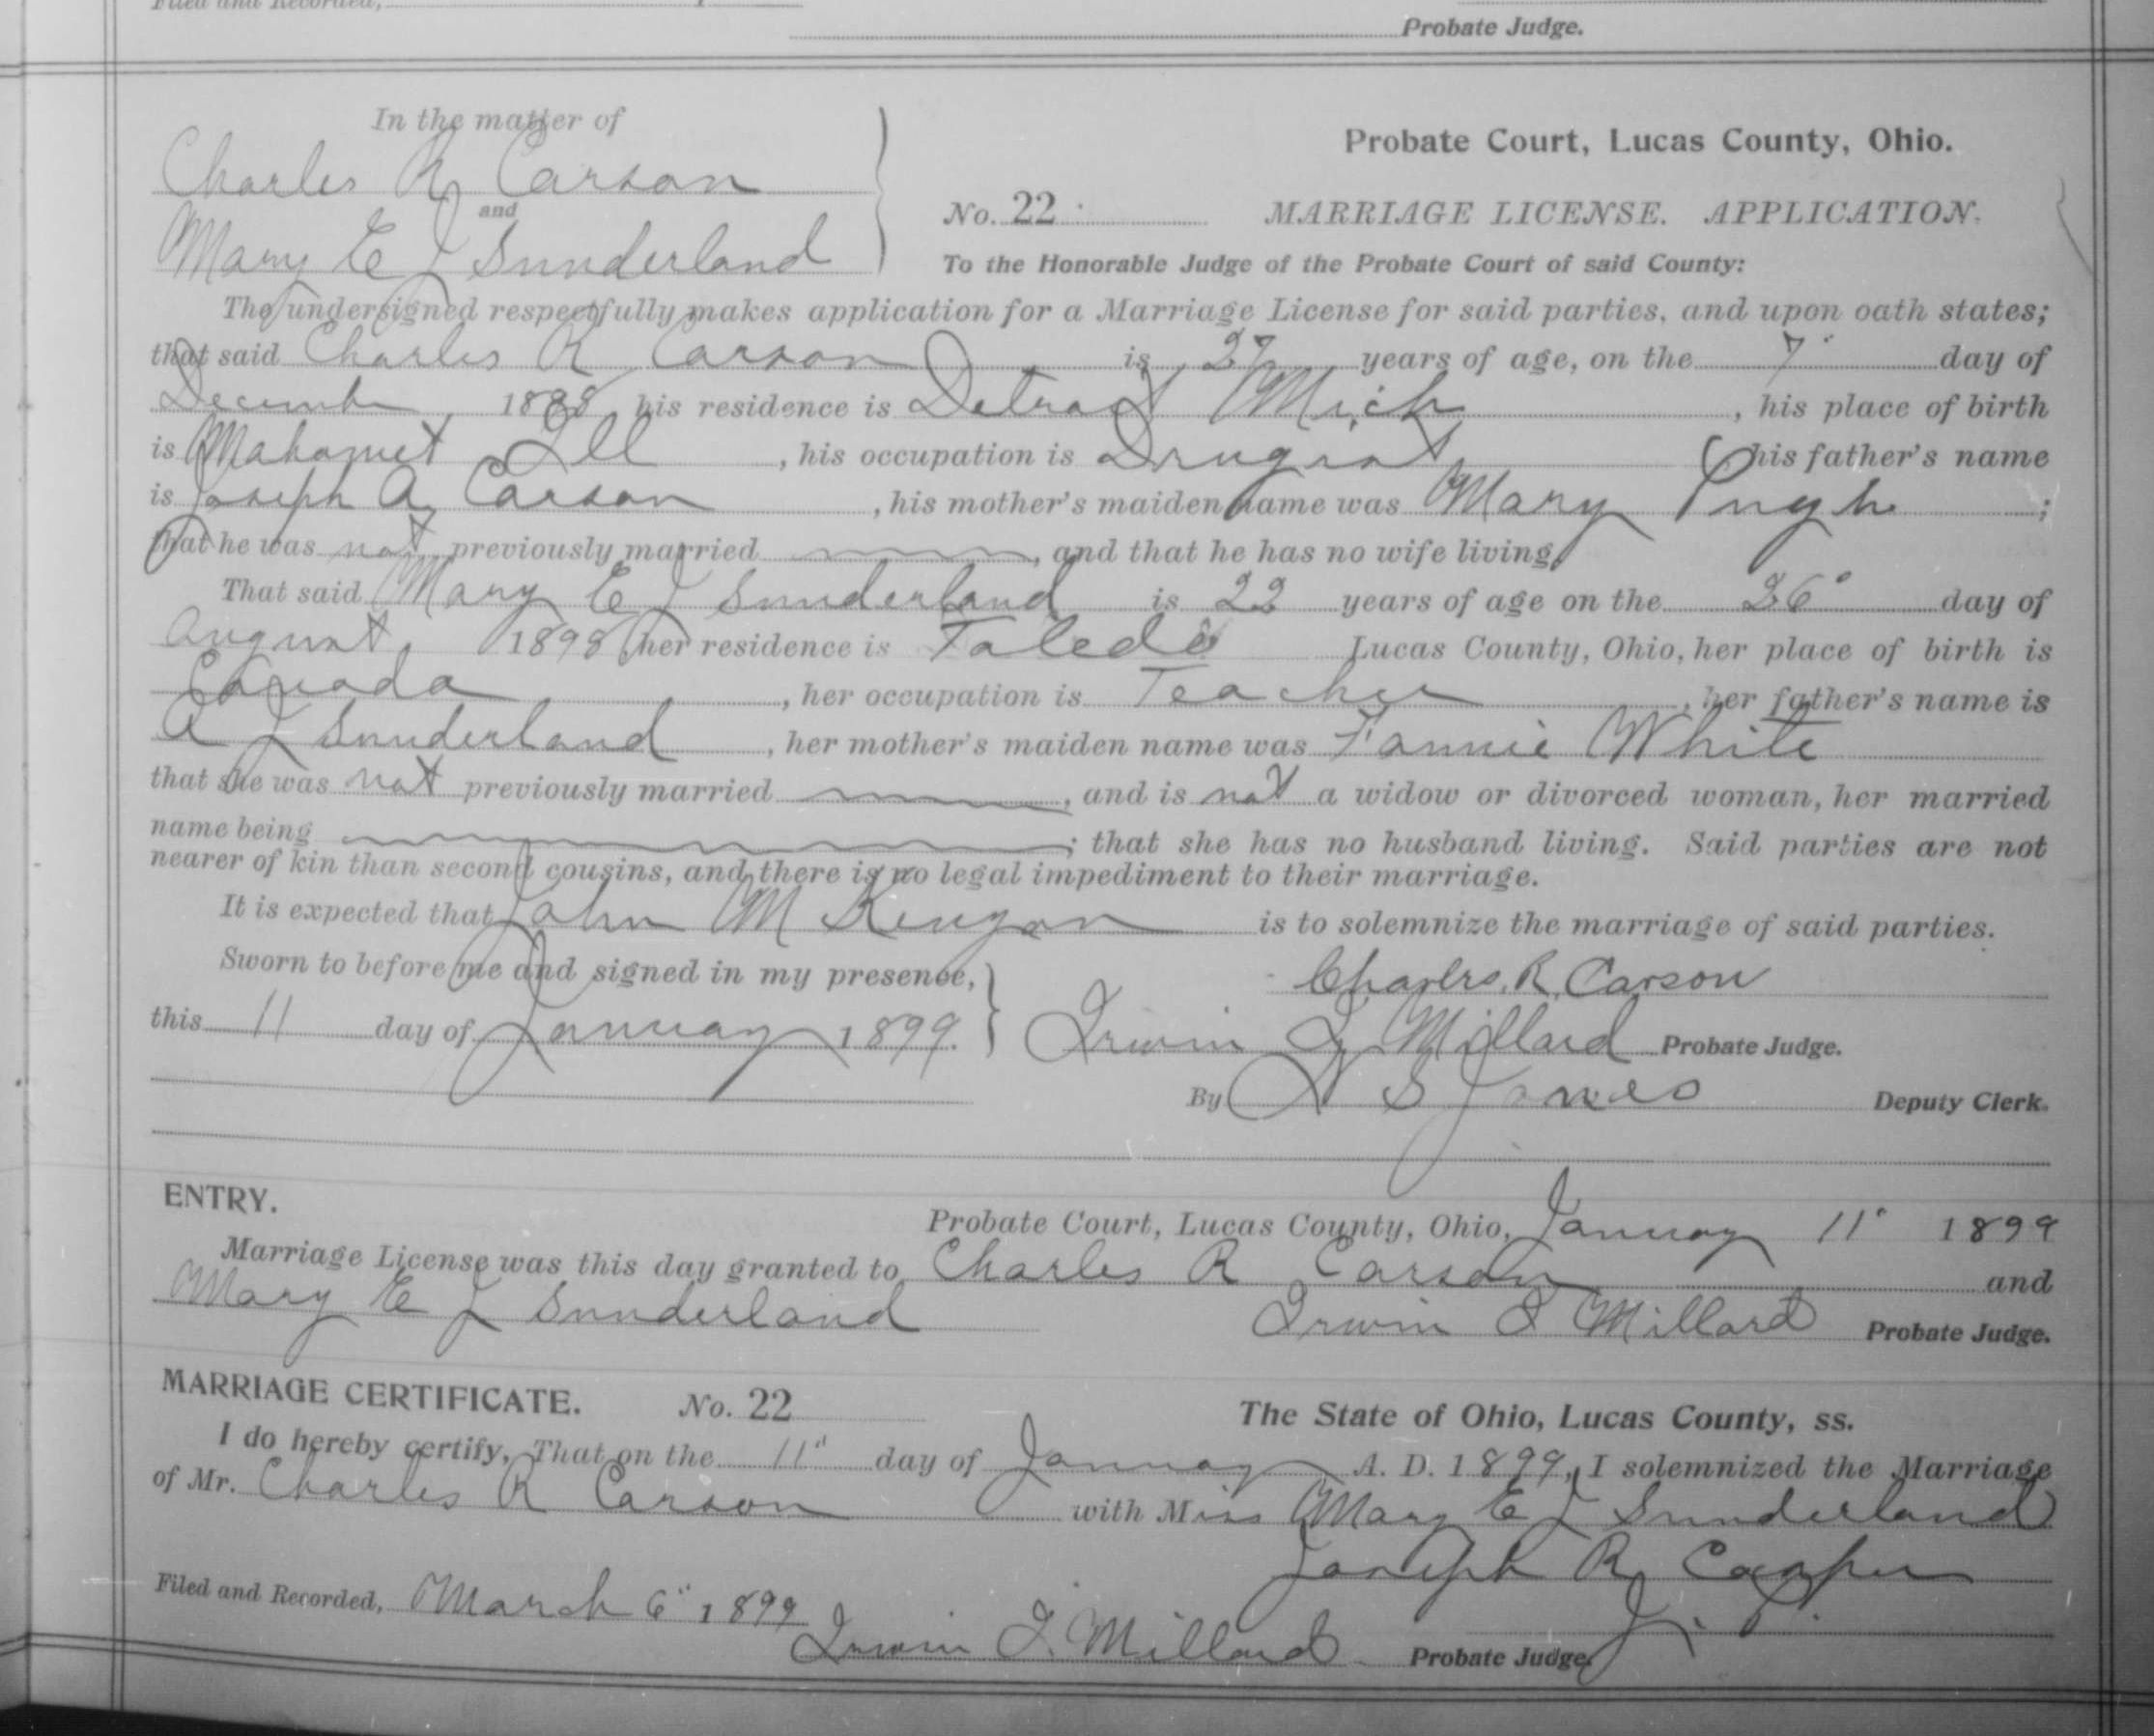 Filed and Recorded,
Probate Judge.
In the matter of
Charles R Carson
and
Mary E J Sunderland
Probate Court, Lucas County, Ohio.
No. 22 MARRIAGE LICENSE. APPLICATION.
To the Honorable Judge of the Probate Court of said County:
The undersigned respectfully makes application for a Marriage License for said parties, and upon oath states;
that said Charles R Carson is 27 years of age, on the 7" day of
December, 1898 his residence is Detroit Mich, his place of birth
is Mahomet Ill, his occupation is Drugist, his father's name
is Joseph A Carson, his mother's maiden name was Mary Pugh;
that he was not previously married, and that he has no wife living,
That said Mary E J Sunderland is 22 years of age on the 26" day of
August, 1898 her residence is Toledo Lucas County, Ohio, her place of birth is
Canada, her occupation is Teacher, her father's name is
A J Sunderland, her mother's maiden name was Fannie White
that she was not previously married, and is not a widow or divorced woman, her married
name being ; that she has no husband living. Said parties are not
nearer of kin than second cousins, and there is no legal impediment to their marriage.
It is expected that John M Kenyon is to solemnize the marriage of said parties.
Sworn to before me and signed in my presence,
this 11 day of January 1899.
Charles. R. Carson
Irwin I Millard Probate Judge.
By W S Jones Deputy Clerk.
ENTRY.
Probate Court, Lucas County, Ohio, January 11" 1899
Marriage License was this day granted to Charles R Carson and
Mary E J Sunderland
Irwin I Millard Probate Judge.
MARRIAGE CERTIFICATE. No. 22 The State of Ohio, Lucas County, ss.
I do hereby certify, That on the 11" day of January A. D. 1899, I solemnized the Marriage
of Mr. Charles R Carson with Miss Mary E J Sunderland
Joseph R Cooper
J. P.
Filed and Recorded, March 6" 1899
Irwin I. Millard Probate Judge